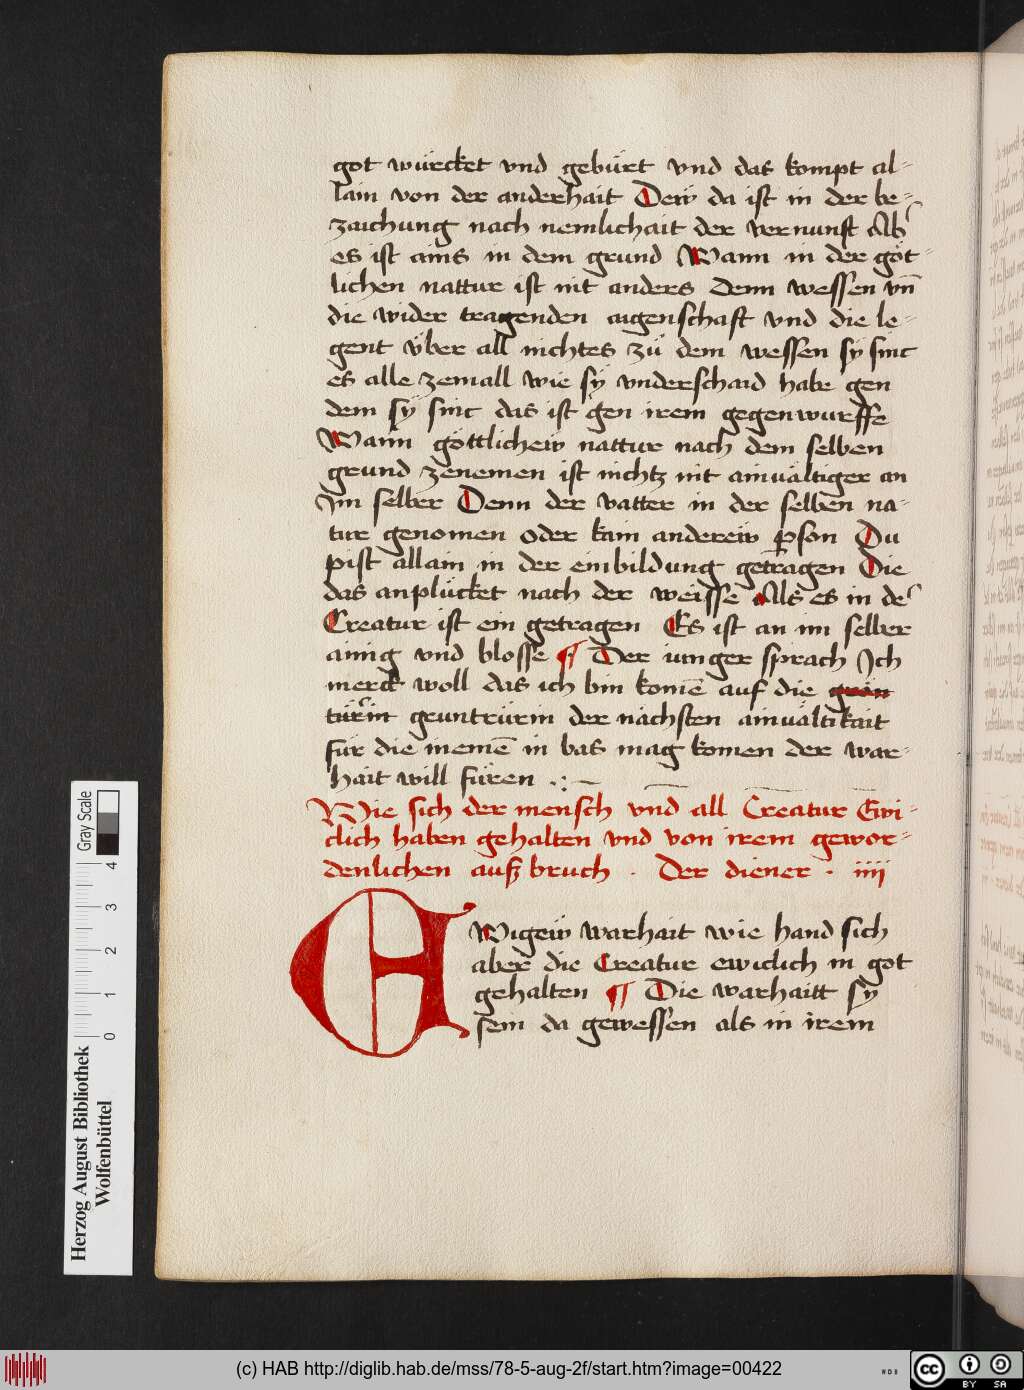 got würcket vnd gebürt vnd das kompt al-
lain von der anderhait Dew̎ da ist in der be-
zaichung nach nemlichait der vernunft Als
es ist ains in dem grund Wann in der göt-
lichen nattur ist nit anders denn wessen vn̄
die wider tragenden aigenschaft vnd die le-
gent über all nichtes zü dem wessen sÿ sint
es alle zemall wie sÿ vnderschaid habe gen
dem sÿ sint das ist gen irem gegenwurffe
Wann göttlichew nattur nach dem selben
grund zenemen ist nichtz nit ainualtiger an
Jm selber Denn der vatter in der selben na-
tur genomen oder kain anderew̎ pson Du
pist allain in der einbildung getragen Die
das anplücket nach der weisse Als es in der
Creatur ist ein getragen Es ist an im selber
ainig vnd blosse ¶ Der iunger sprach Jch
merck woll das ich bin komē auf die
gruntrürin der nächsten ainualtikait
für die niemē in bas mag komen der war-
hait will füren
Wie sich der mensch vnd all Creatur Ewi-
clich haben gehalten vnd von irem gewor-
denlichen außbruch . Der diener . iiii
EWigew̎ warhait wie hand sich
aber die Creatur ewiclich in got
gehalten ¶ Die warhaitt sÿ
sein da gewessen als in irem
Gray Scale
4 3 2 1 0
Herzog August Bibliothek
Wolfenbüttel
(c) HAB http://diglib.hab.de/mss/78-5-aug-2f/start.htm?image=00422
WDB
cc BY SA